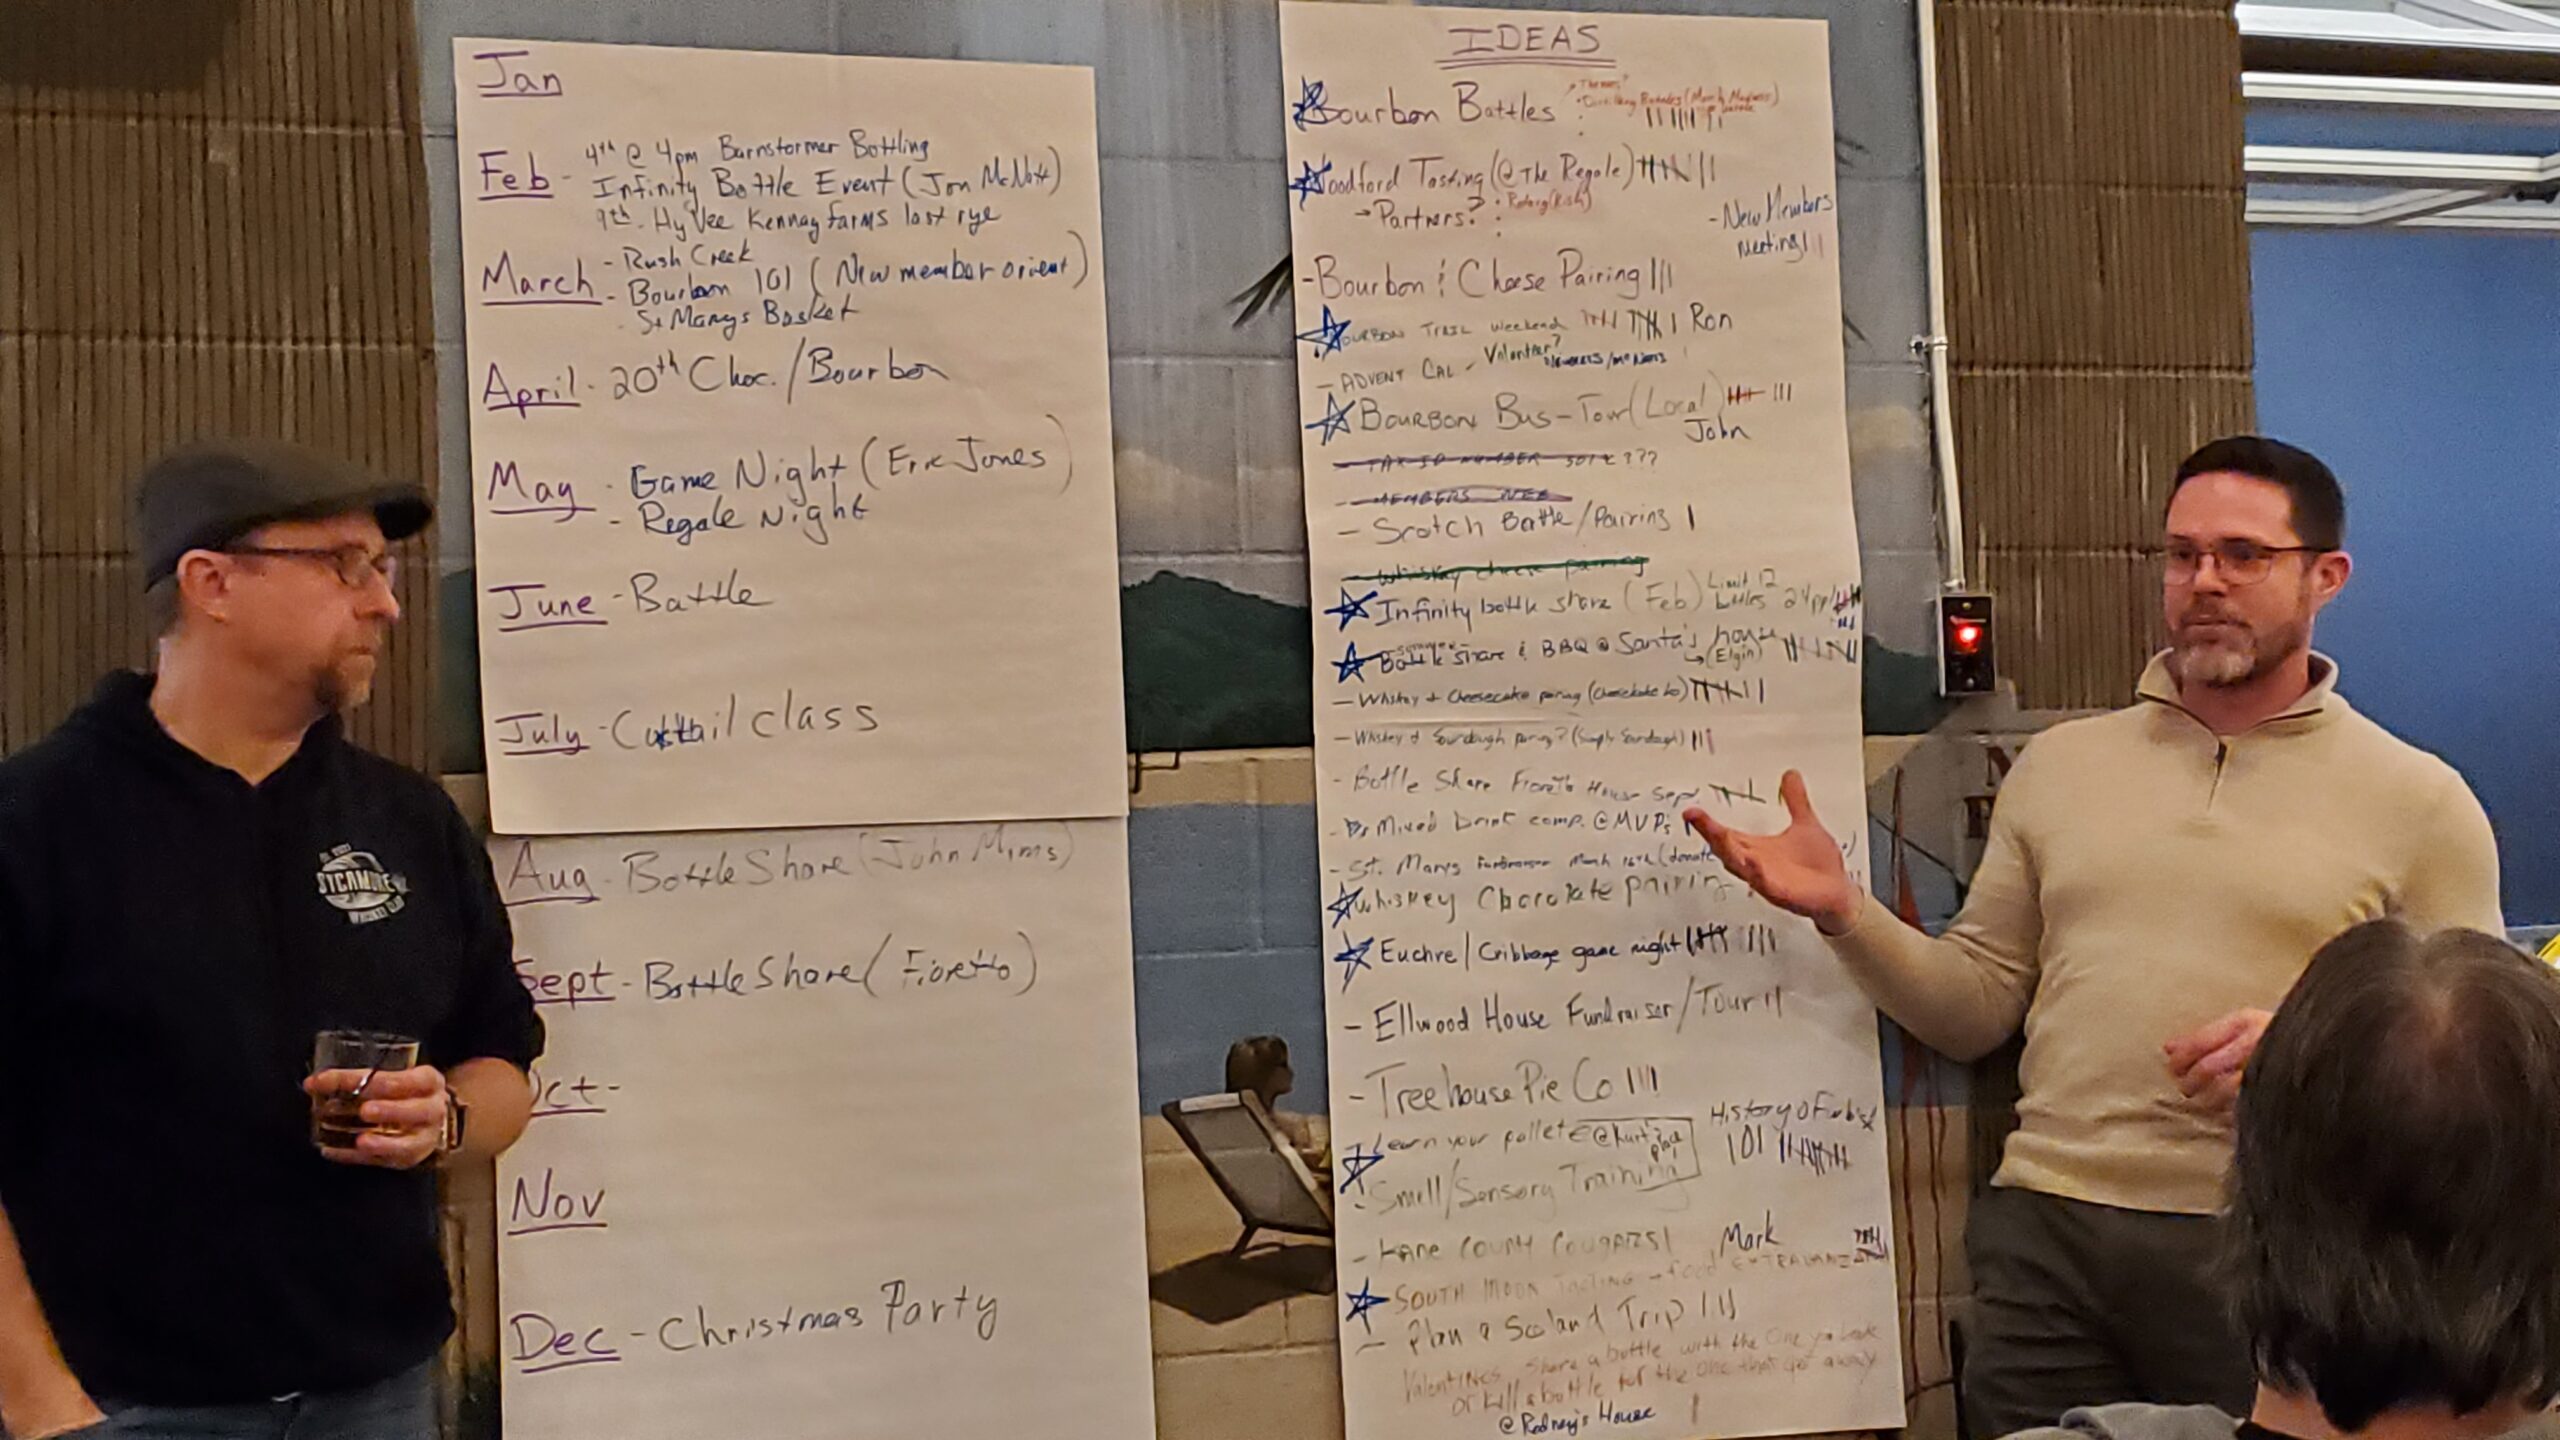 Jan
Feb - 4th @ 4pm Barnstormer Bottling
Infinity Bottle Event (Jon McNatt)
9th - HyVee Kennay farms last rye
March - Rush Creek
- Bourbon 101 (New member orient)
- St Marys Basket
April - 20th Choc. / Bourbon
May - Game Night (Eric Jones)
- Regale Night
June - Battle
July - Cocktail class
Aug - Bottle Share (John Mims)
Sept - Bottle Share (Fioretto)
Oct -
Nov
Dec - Christmas Party
SYCAMORE
WHISKEY CLUB
IDEAS
Bourbon Battles
Themes?
Distillery Battles (March Madness)
Woodford Tasting (@ The Regale)
→ Partners?
- New Members
Meeting
- Bourbon & Cheese Pairing
BOURBON TRAIL Weekend Ron
- ADVENT CAL - Volunteer?
BOURBON BUS-TOUR (Local)
John
- TAX ID NUMBER ???
- MEMBERS
- Scotch Battle / Pairing
- Whiskey cheese pairing
Infinity bottle share (Feb) Limit 12 bottles
Bottle share & BBQ @ Santa's house
(Elgin)
- Whiskey + Cheesecake pairing
- Whiskey & Sourdough pairing? (Simply Sourdough)
- Bottle Share Fioretto House Sept
Mixed Drink comp. @ MVP's
- St. Marys Fundraiser March 16th (donate
Whiskey Chocolate pairing
Euchre / Cribbage game night
- Ellwood House Fundraiser / Tour
- Treehouse Pie Co
Learn your pallete @ Kurt's place
- Smell / Sensory Training
History of
101
- KANE COUNTY COUGARS
Mark
SOUTH MOON TASTING - food
- Plan a Scotland Trip
Valentines Share a bottle with the One you
or kill a bottle for the one that got away
@ Rodney's House